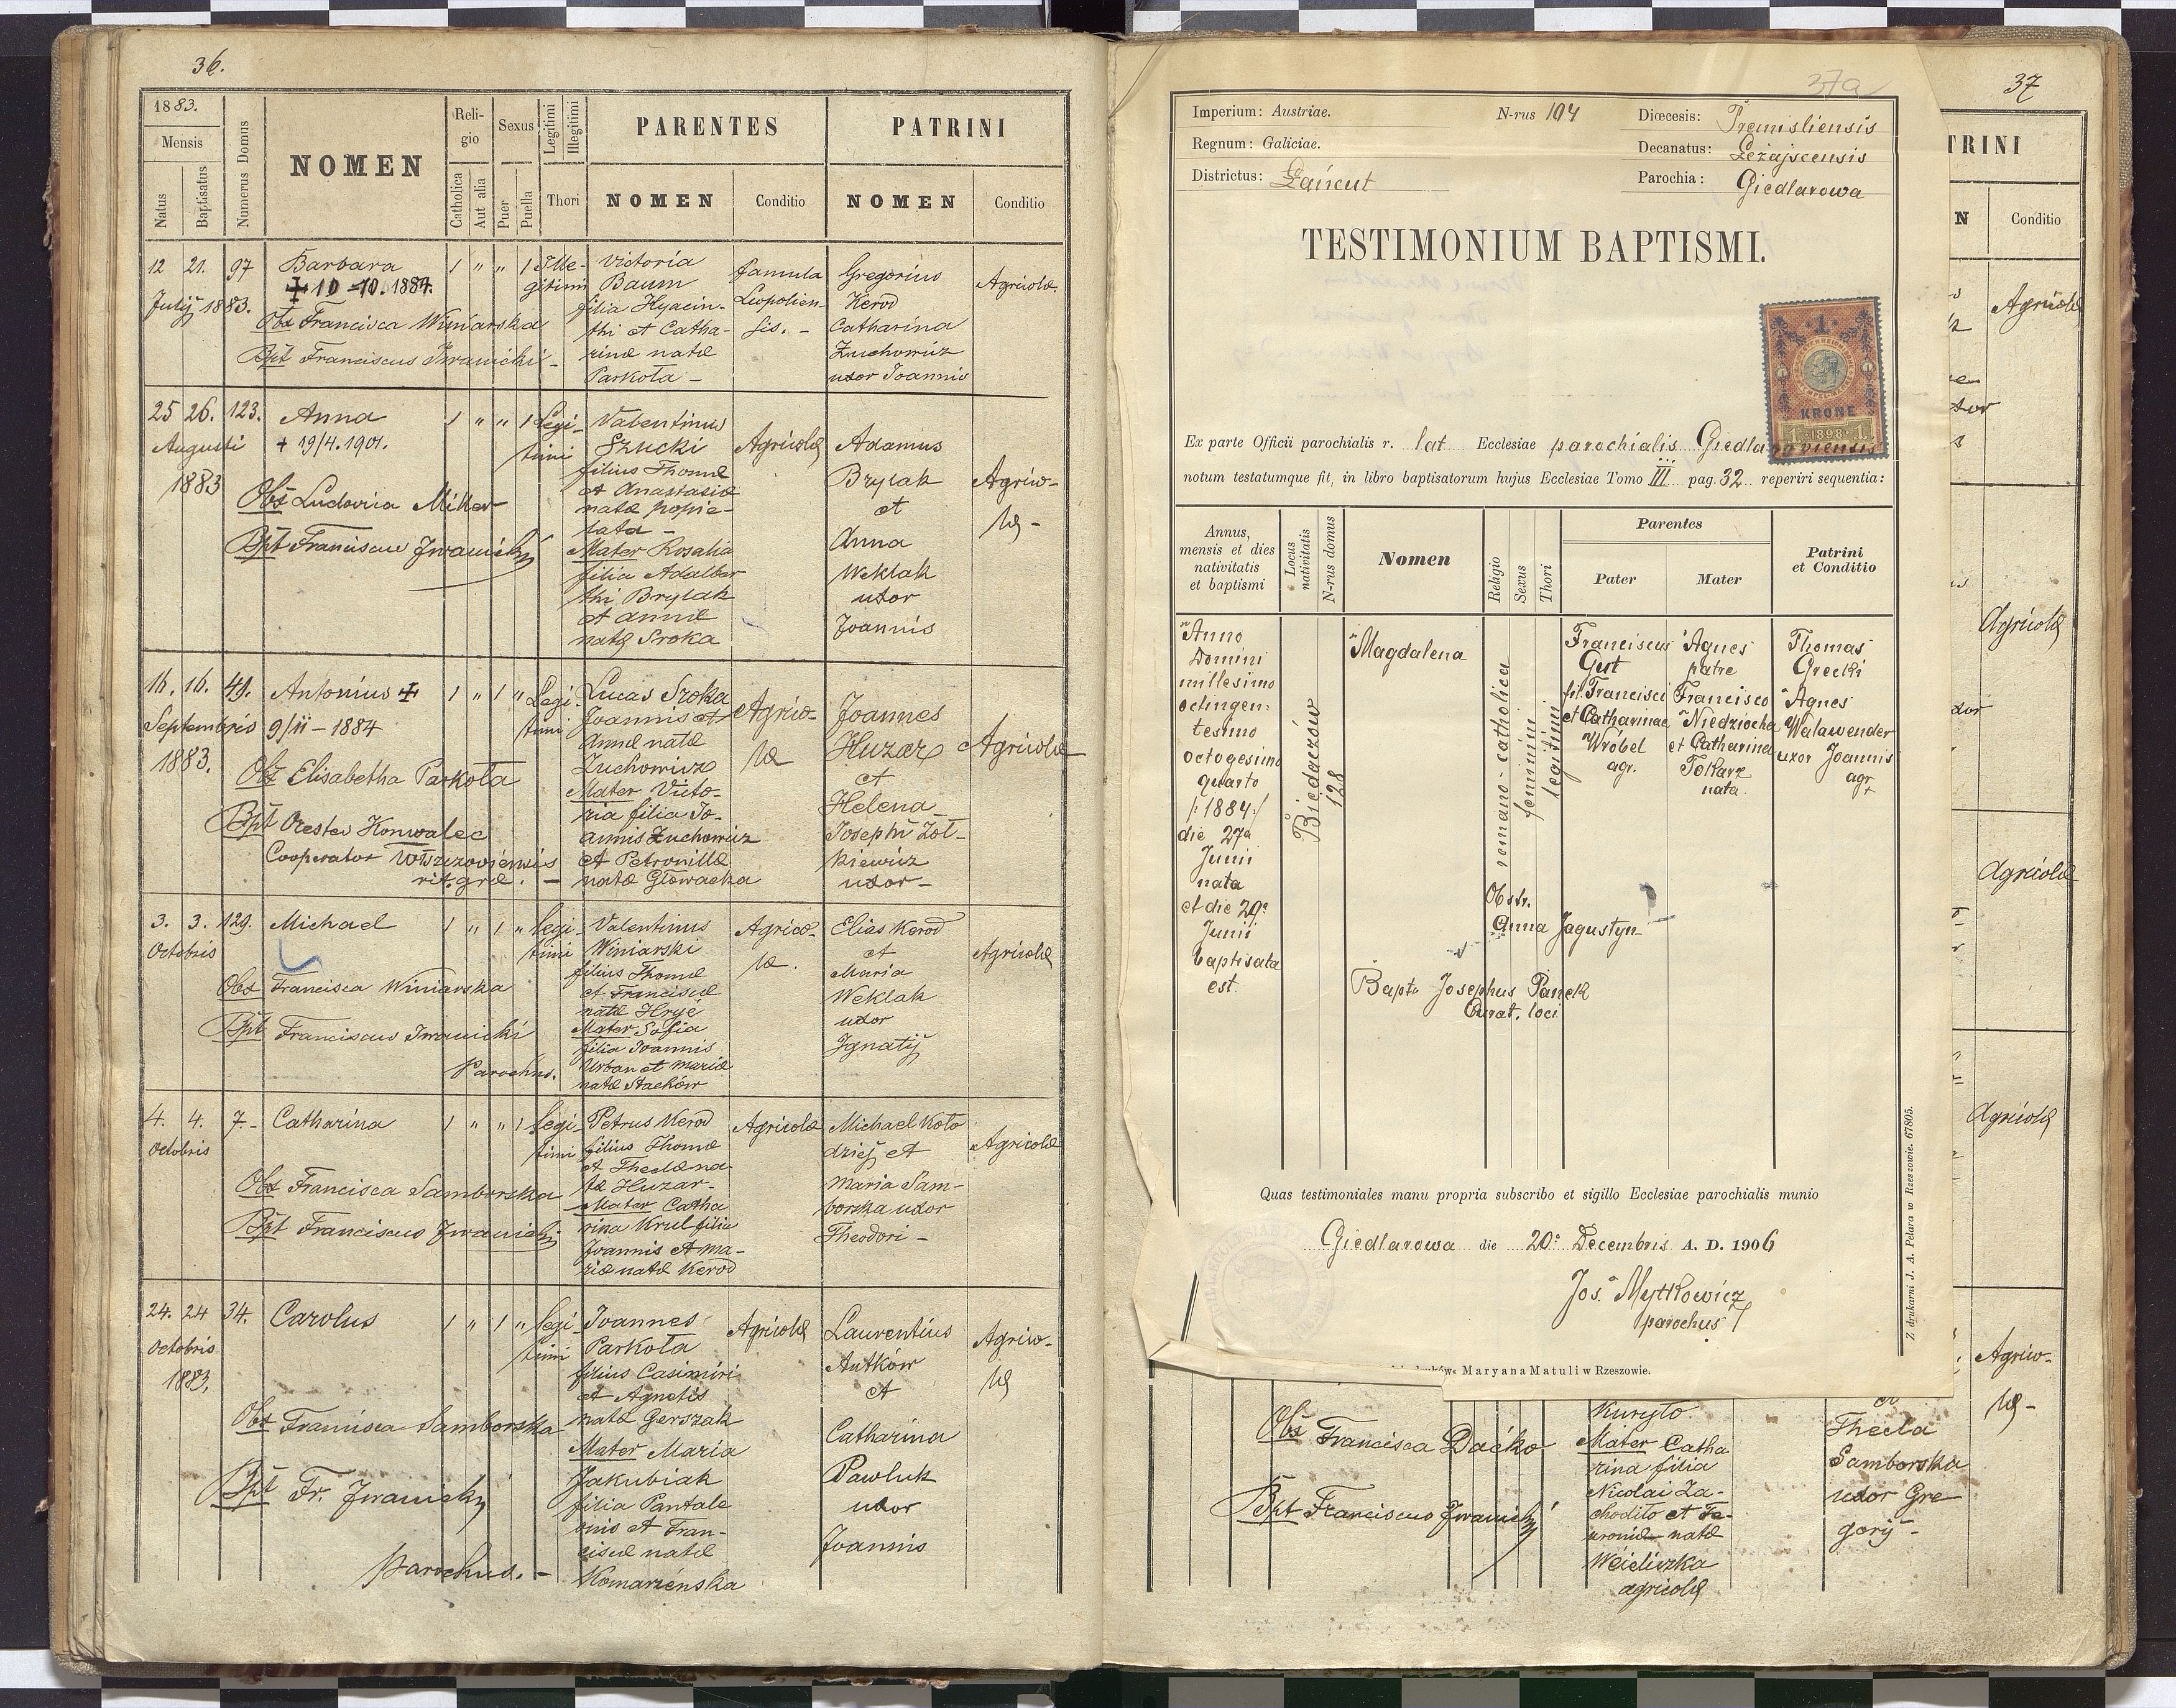 36.
1883.
Mensis
Natus
Baptisatus
Numerus Domus
NOMEN
Religio
Catholica
Aut alia
Sexus
Puer
Puella
Legitimi
Illegitimi
Thori
PARENTES
NOMEN
Conditio
PATRINI
NOMEN
Conditio
12 21. 97 Barbara 1 " " 1 Ille-
gitimi
Julij 1883.
+ 10-10. 1884.
Obs Francisca Winiarska
Bpt Franciscus Iwanicki -
Victoria
Baum
filia Hyacin-
thi et Catha-
rinæ natæ
Parkota -
famula
Leopolien-
sis. -
Gregorius
Kerod
Catharina
Zuchowicz
uxor Joannis
Agricolæ
25 26. 123. Anna 1 " " 1 Legi-
timi
Augusti
1883
+ 19/4. 1901.
Obs Ludovica Miller
Bpt Franciscus Iwanicki
Valentinus
Szucki
filius Thomæ
et Anastasiæ
natæ Popie-
lata -
Mater Rosalia
filia Adalber
thi Brylak
et Annæ
natæ Sroka
Agricolæ
Adamus
Brylak
et
Anna
Weklak
uxor
Joannis
Agrico-
læ -
16. 16. 49. Antonius + 1 " 1 " Legi-
timi
Septembris
1883.
9/11 - 1884
Obs Elisabetha Parkota
Bpt Orestes Konwalec
Cooperator
rit. græ. -
Lucas Sroka
Joannis et
Annæ natæ
Zuchowicz
Mater Victo-
ria filia Jo-
annis Zuchowicz
et Petronillæ
natæ Głowacka
Agrico-
læ
Joannes
Huzar
et
Helena
Josephi Żół-
kiewicz
uxor -
Agricolæ
3. 3. 129. Michael 1 " 1 " legi-
timi
Octobris
Obs Francisca Winiarska
Bpt Franciscus Iwanicki
Parochus.
Valentinus
Winiarski
filius Thomæ
et Franciscæ
natæ Hryć
Mater Sofia
filia Joannis
Urban et Mariæ
natæ Staehów
Agrico-
læ.
Elias Kerod
et
Maria
Weklak
uxor
Ignatij
Agricolæ
4. 4. 7. Catharina 1 " " 1 legi-
timi
Octobris
Obs Francisca Samborska
Bpt Franciscus Iwanicki
Petrus Kerod
filius Thomæ
et Theclæ na-
tæ Huzar -
Mater Catha
rina Krul filia
Joannis et Ma-
riæ natæ Kerod
Agricolæ
Michael Koło
dziej et
Maria Sam-
borska uxor
Theodori -
Agricolæ
24. 24 34. Carolus 1 " 1 " legi-
timi
Octobris
1883.
Obs Francisca Samborska
Bpt Fr. Iwanicki
parochus. -
Joannes
Parkota
filius Casimiri
et Agnetis
natæ Gerszak
Mater Maria
Jakubiak
filia Pantale
onis et Fran-
ciscæ natæ
Komarzenska
Agricolæ
Laurentius
Antków
et
Catharina
Pawluk
uxor
Joannis
Agrico-
læ
37a
Imperium: Austriae.
Regnum: Galiciae.
Districtus: Łańcut
N-rus 194
Diœcesis: Premisliensis
Decanatus: Leżajscensis
Parochia: Giedlarowa
TESTIMONIUM BAPTISMI.
1
KRONE
1 · 1898 · 1
Ex parte Officii parochialis r. lat Ecclesiae parochialis Giedlaroviensis
notum testatumque fit, in libro baptisatorum hujus Ecclesiae Tomo III pag. 32 reperiri sequentia:
Annus,
mensis et dies
nativitatis
et baptismi
Locus
nativitatis
N-rus domus
Nomen
Religio
Sexus
Thori
Parentes
Pater
Mater
Patrini
et Conditio
Anno
Domini
millesimo
octingen-
tesimo
octogesimo
quarto
/:1884:/
die 27a
Junii
nata
et die 29a
Junii
baptisata
est.
Biedaczów
128
Magdalena
romano-catholica
feminini
legitimi
Franciscus
Gut
fil. Francisci
et Catharinae
Wróbel
agr.
Agnes
patre
Francisco
Niedziocha
et Catharina
Tokarz
nata
Thomas
Grecki
Agnes
Walawender
uxor Joannis
agr.
Obstr.
Anna Jagustyn
Bapt. Josephus Panek
Curat. loci
Quas testimoniales manu propria subscribo et sigillo Ecclesiae parochialis munio
Giedlarowa die 20a Decembris A. D. 1906
Jos. Mytkowicz
parochus
Z drukarni J. A. Pelara w Rzeszowie. 67805.
Maryana Matuli w Rzeszowie.
37
TRINI
N
Conditio
Agricolæ
Agricolæ
Agricolæ
Agricolæ
Agrico-
læ -
Obs Francisca Daćko
Bpt Franciscus Iwanicki
Kuryło
Mater Catha
rina filia
Nicolai Za-
chodito et Fe-
vroniæ natæ
agricolæ
et
Thecla
Samborska
uxor Gre
gorij -